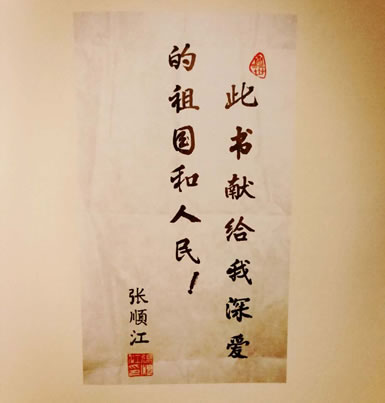 此书献给我深爱
的祖国和人民！
张顺江